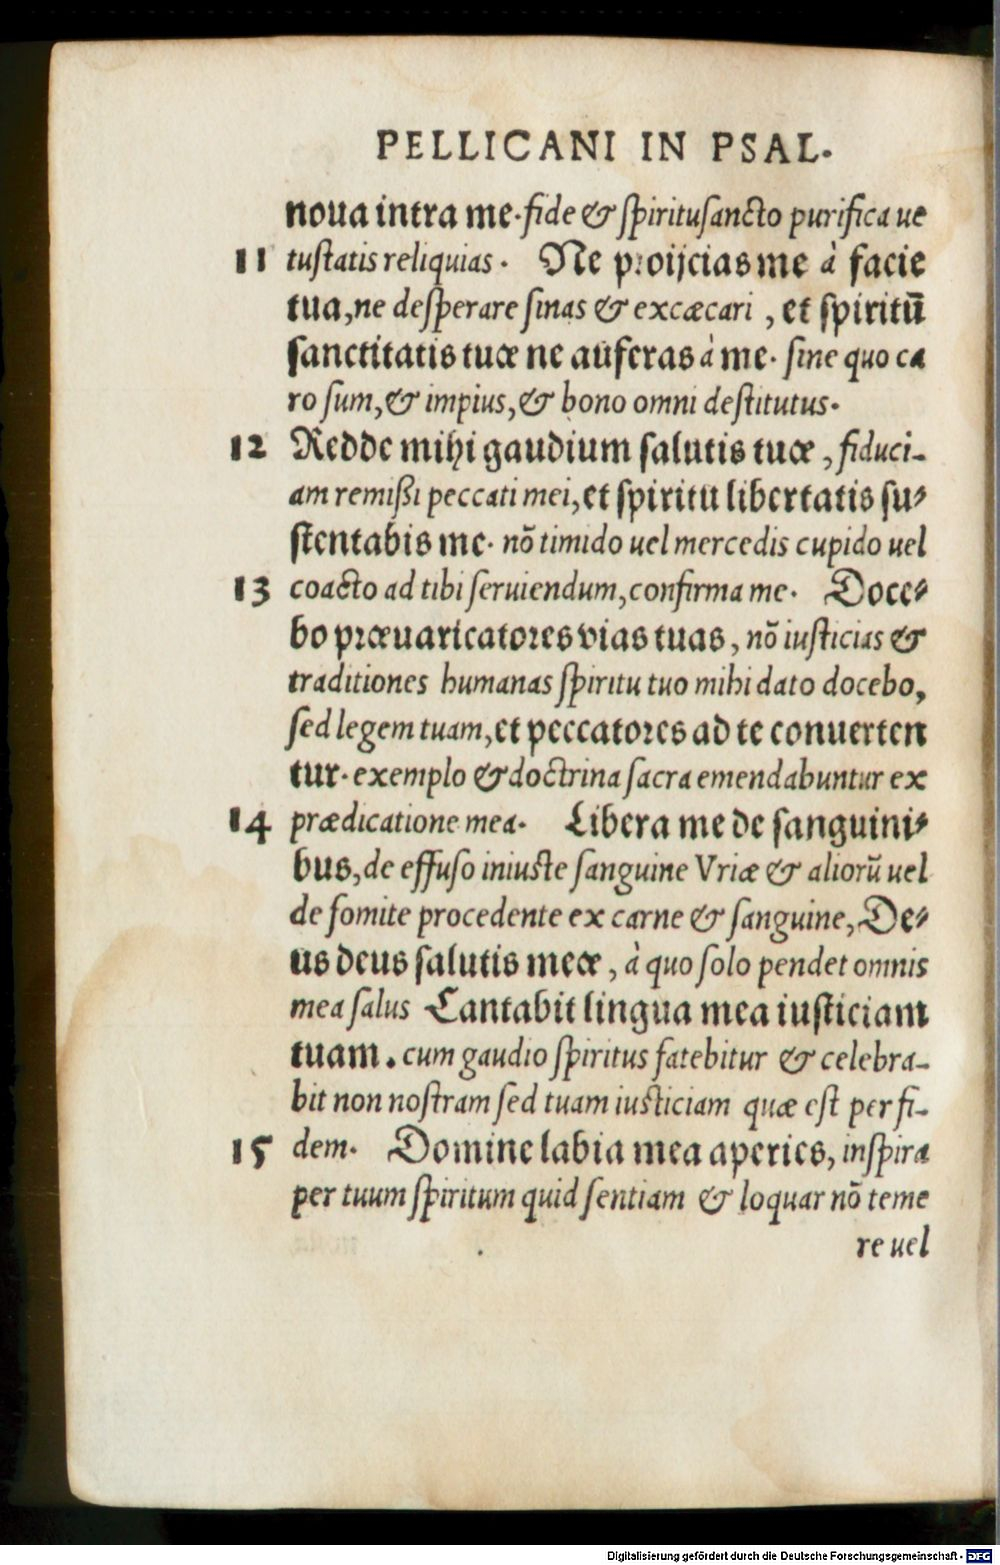 PELLICANI IN PSAL.
noua intra me. fide & spiritusancto purifica ue
11 tustatis reliquias. Ne proijcias me à facie
tua, ne desperare sinas & excæcari, et spiritū
sanctitatis tuæ ne auferas à me. sine quo ca
ro sum, & impius, & bono omni destitutus.
12 Redde mihi gaudium salutis tuæ, fiduci-
am remißi peccati mei, et spiritu libertatis su-
stentabis me. nō timido uel mercedis cupido uel
13 coacto ad tibi seruiendum, confirma me. Doce-
bo præuaricatores vias tuas, nō iusticias &
traditiones humanas spiritu tuo mihi dato docebo,
sed legem tuam, et peccatores ad te conuerten
tur. exemplo & doctrina sacra emendabuntur ex
14 prædicatione mea. Libera me de sanguini-
bus, de effuso iniuste sanguine Vriæ & aliorū uel
de fomite procedente ex carne & sanguine, De-
us deus salutis meæ, à quo solo pendet omnis
mea salus Cantabit lingua mea iusticiam
tuam. cum gaudio spiritus fatebitur & celebra-
bit non nostram sed tuam iusticiam quæ est per fi-
15 dem. Domine labia mea aperies, inspira
per tuum spiritum quid sentiam & loquar nō teme
re uel
Digitalisierung gefördert durch die Deutsche Forschungsgemeinschaft - DFG